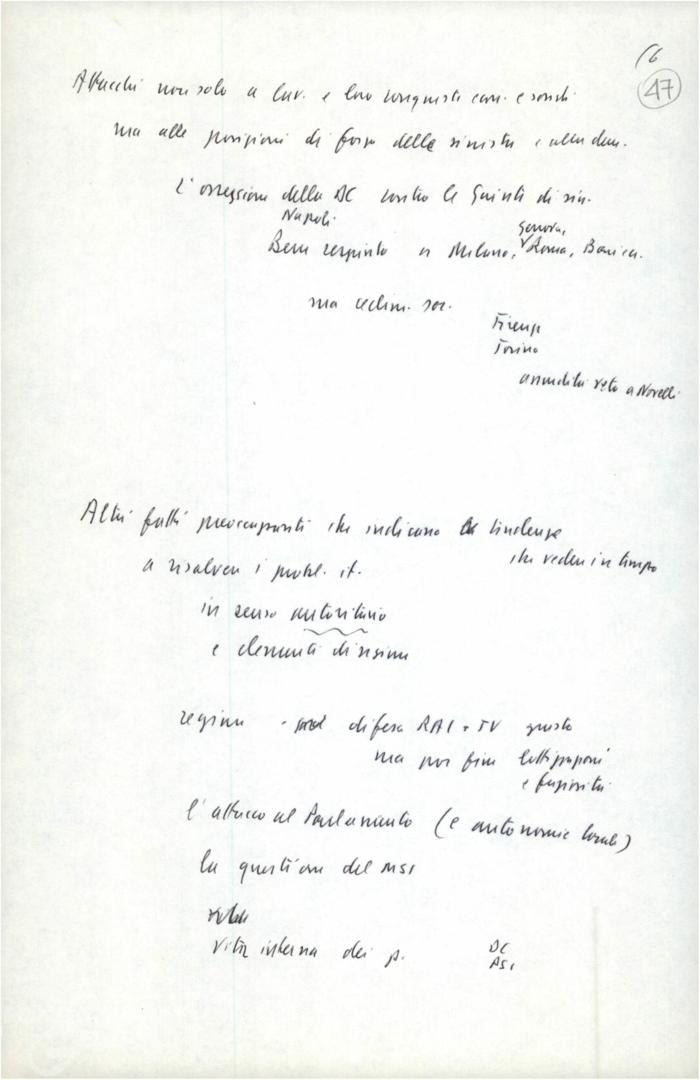 16
47
Attacchi non solo a lav. e loro conquiste econ. e sociali
ma alle posizioni di forza della sinistra e alla dem.
L'ossessione della DC contro le Giunte di sin.
Napoli
Genova,
Bene respinto a Milano, Roma,
ma cedim. soc.
Firenze
Torino
veto a Novelli
Altri fatti preoccupanti che indicano tendenze
che vedere in tempo
a risolvere i probl. it.
in senso autoritario
e elementi di regime
regime - difesa RAI-TV giusto
ma poi fine lottizzazioni
e faziosità
l'attacco al Parlamento (e autonomie locali)
la questione del MSI
vita interna dei p.
DC
PSI